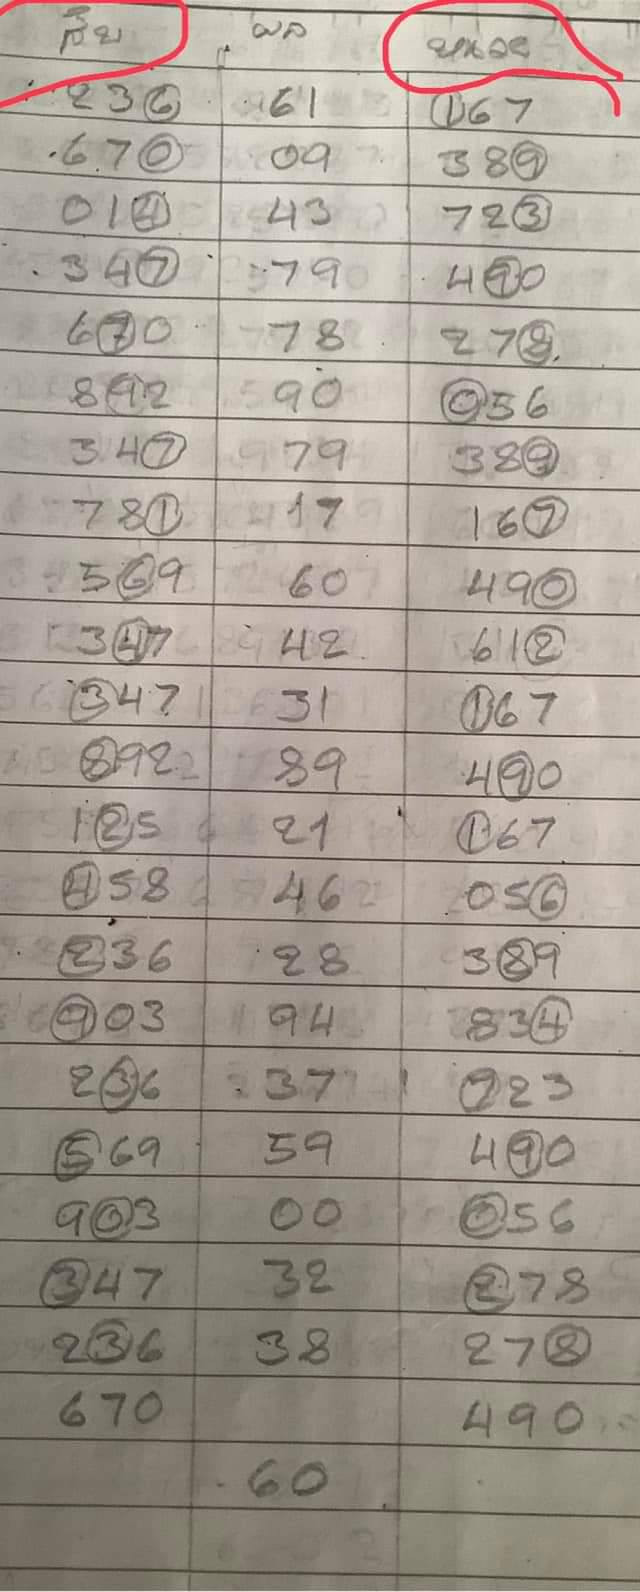 สิบ ผล หน่วย
236 61 167
670 09 389
014 43 723
347 79 490
670 78 278
892 90 056
347 79 389
781 17 167
569 60 490
347 42 612
347 31 167
892 89 490
125 21 167
458 46 056
236 28 389
903 94 834
236 37 723
569 59 490
903 00 056
347 32 278
236 38 278
670 490
60